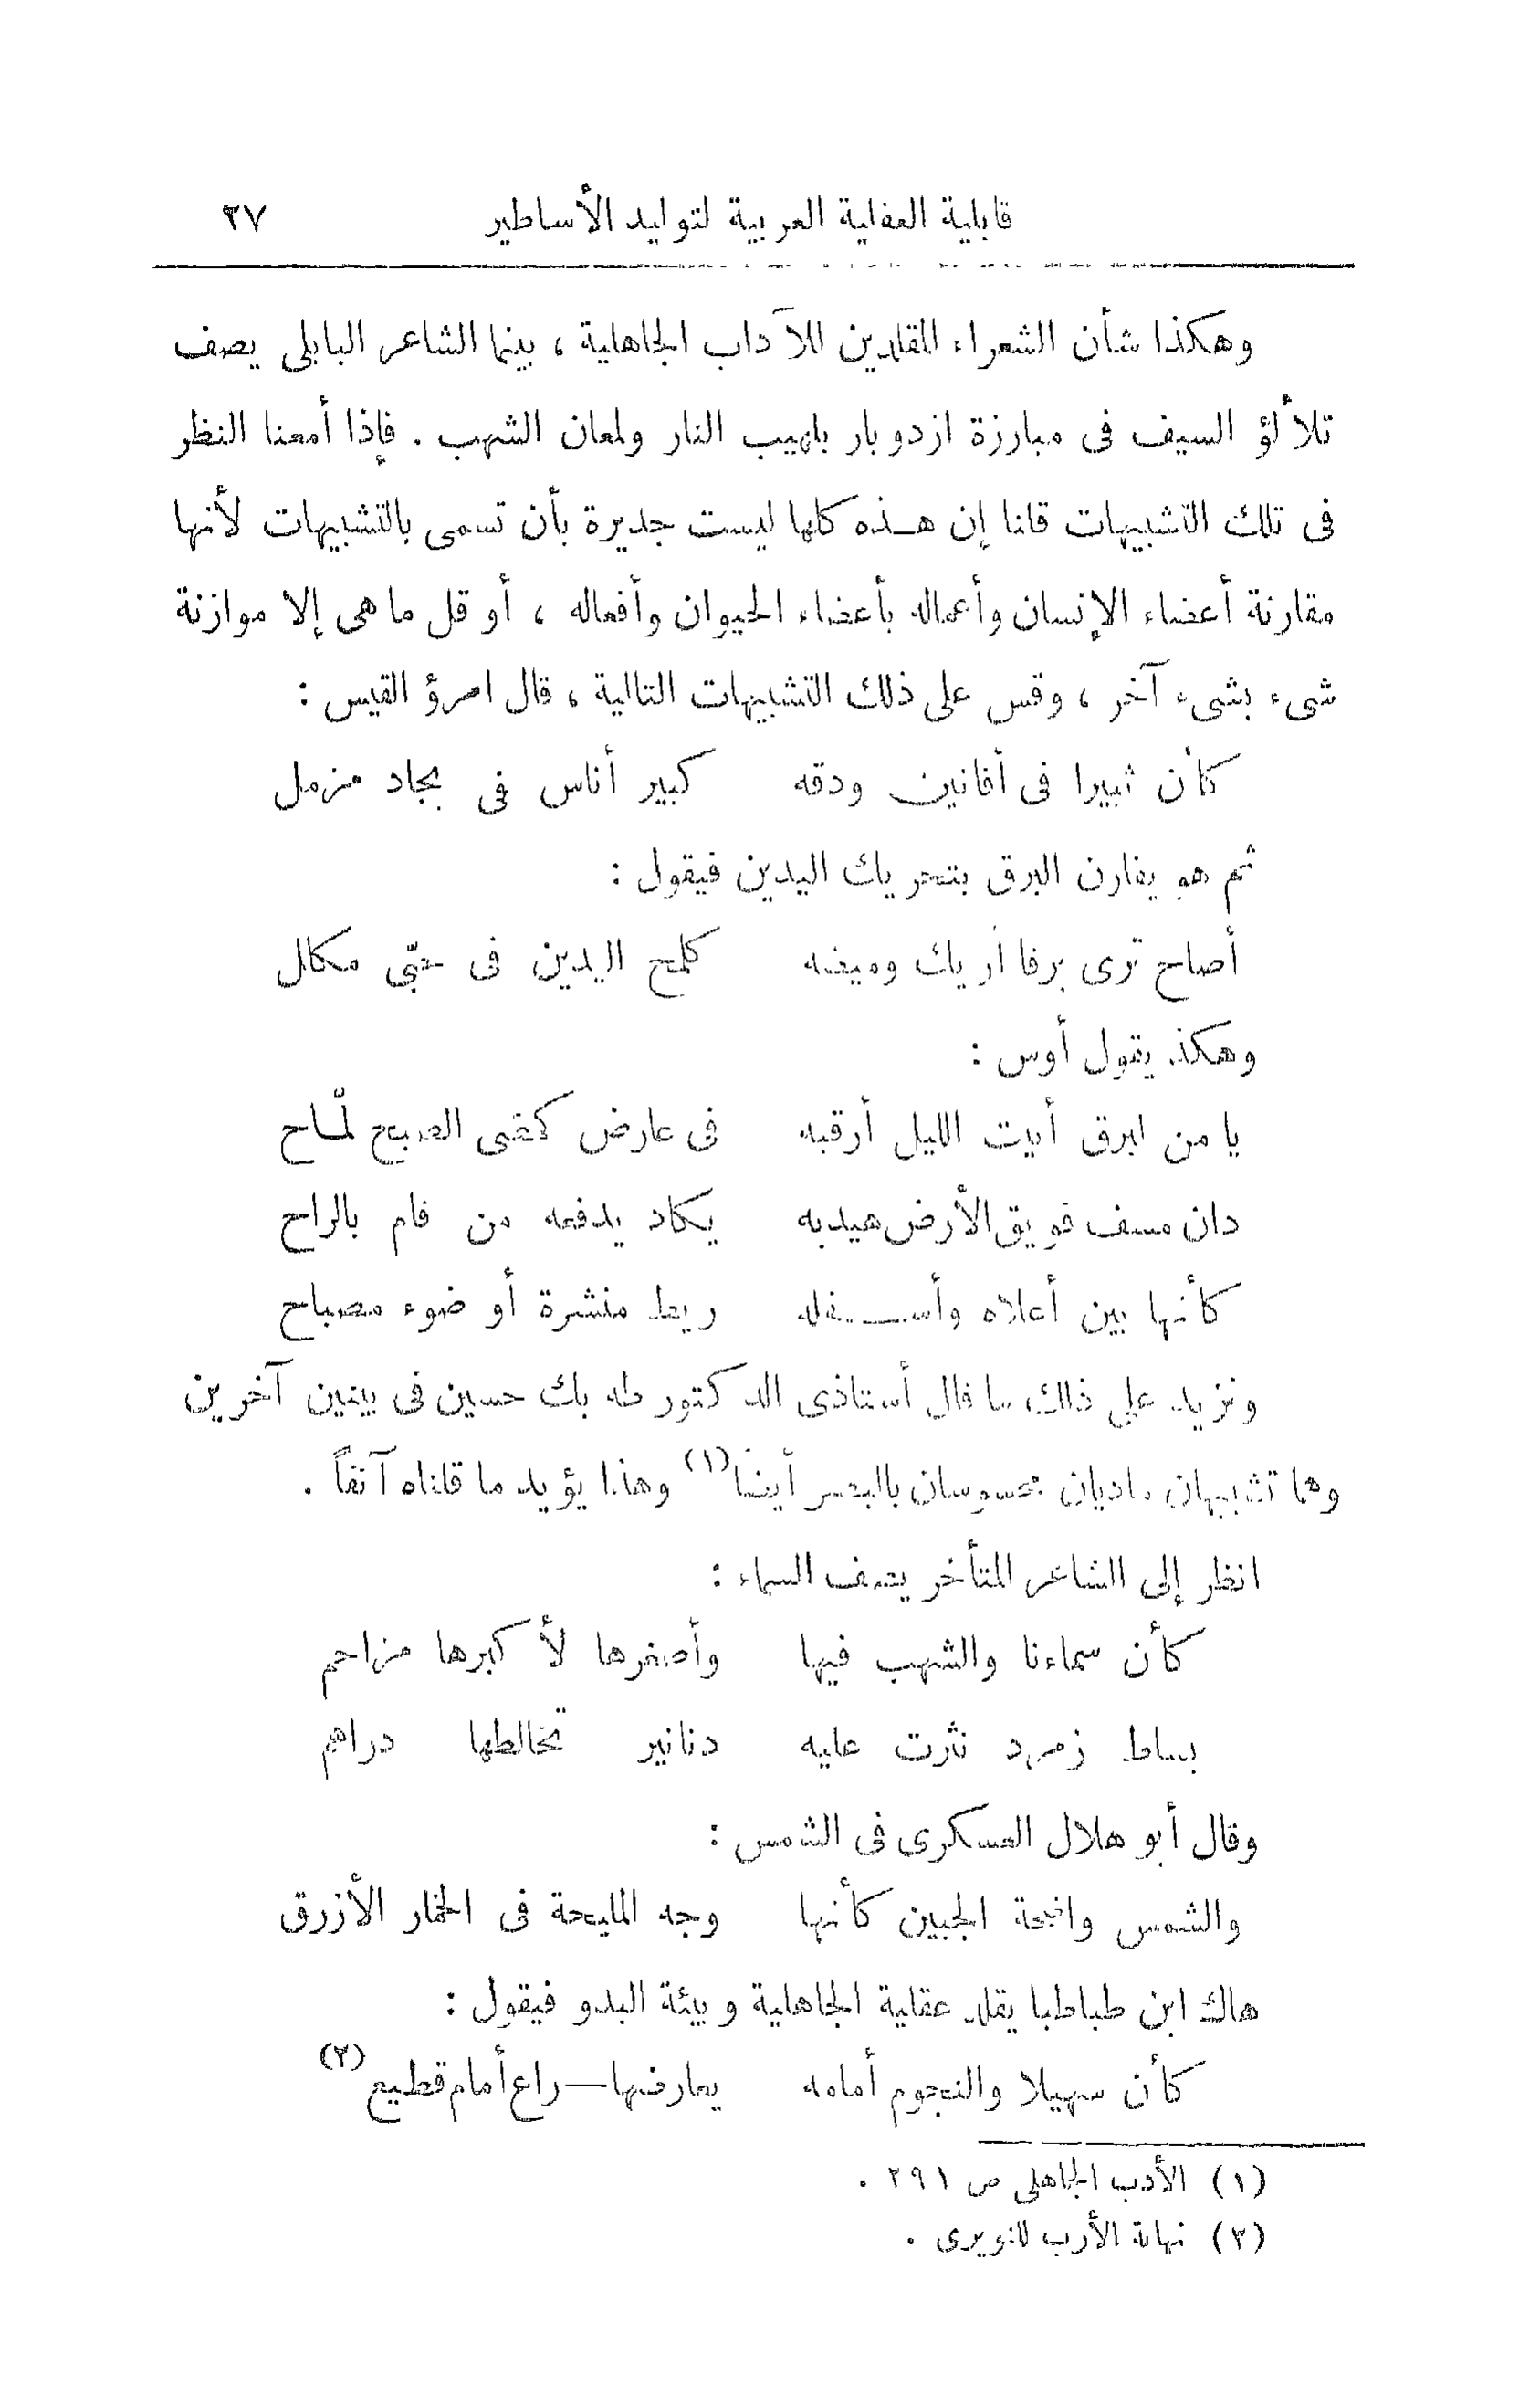 قابلية العقلية العربية لتوليد الأساطير ٢٧
وهكذا شأن الشعراء المقلدين للآداب الجاهلية ، بينما الشاعر البابلى يصف
تلألؤ السيف فى مبارزة ازدوبار بلهيب النار ولمعان الشهب . فإذا أمعنا النظر
فى تلك التشبيهات قلنا إن هـذه كلها ليست جديرة بأن تسمى بالتشبيهات لأنها
مقارنة أعضاء الإنسان وأعماله بأعضاء الحيوان وأفعاله ، أو قل ما هى إلا موازنة
شىء بشىء آخر ، وقس على ذلك التشبيهات التالية ، قال امرؤ القيس :
كأن ثبيرا فى أفانين ودقه كبير أناس فى بجاد مزمل
ثم هو يقارن البرق بتحريك اليدين فيقول :
أصاح ترى برقا أريك وميضه كلمح اليدين فى حبّى مكلل
وهكذا يقول أوس :
يا من لبرق أبيت الليل أرقبه فى عارض كمضى الصبح لمّاح
دان مسف فويق الأرض هيدبه يكاد يدفعه من قام بالراح
كأنها بين أعلاه وأسـفله ريط منشرة أو ضوء مصباح
ونزيد على ذلك ما قال أستاذى الدكتور طه بك حسين فى بيتين آخرين
وهما تشبيهان ماديان محسوسان بالبصر أيضاً (١) وهذا يؤيد ما قلناه آنفاً .
انظر إلى الشاعر المتأخر يصف السماء :
كأن سماءنا والشهب فيها وأصغرها لأكبرها مزاحم
بساط زمرد نثرت عليه دنانير تخالطها دراهم
وقال أبو هلال العسكرى فى الشمس :
والشمس واضحة الجبين كأنها وجه المليحة فى الخمار الأزرق
هاك ابن طباطبا يقلد عقلية الجاهلية وبيئة البدو فيقول :
كأن سهيلا والنجوم أمامه يعارضها — راع أمام قطيع (٢)
(١) الأدب الجاهلى ص ٢٩١ .
(٢) نهاية الأرب للنويرى .